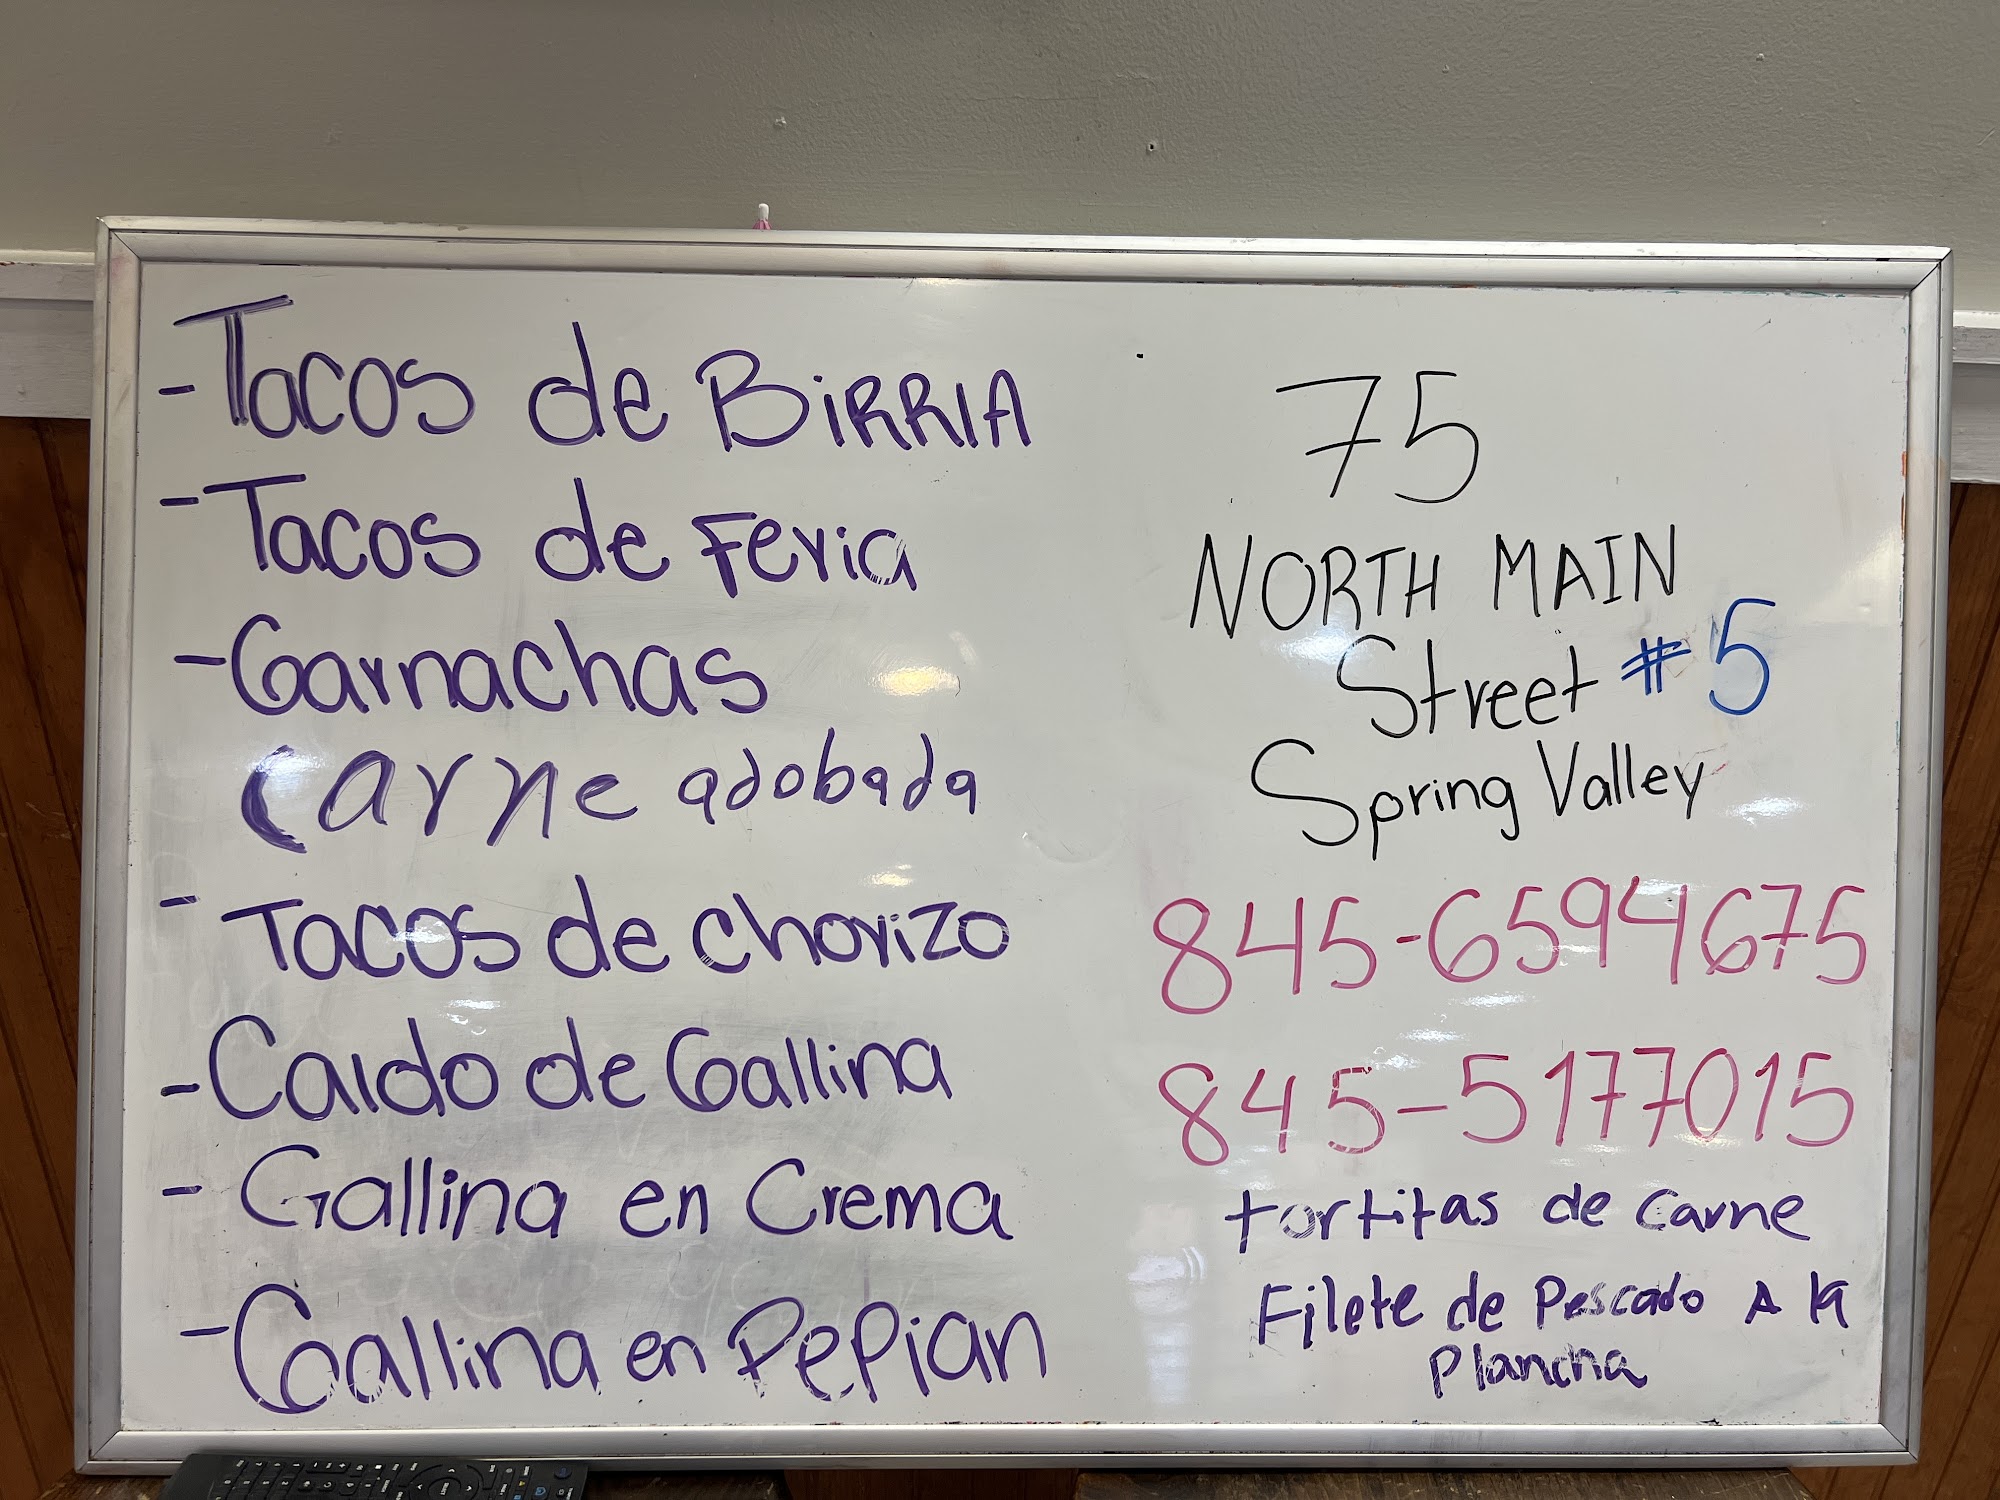 - Tacos de BiRRIA
- Tacos de Feria
- Garnachas
Carne adobada
- Tacos de Chorizo
- Caldo de Gallina
- Gallina en Crema
- Gallina en Pepian
75
NORTH MAIN
Street #5
Spring Valley
845-6594675
845-5177015
tortitas de Carne
Filete de Pescado A la
Plancha